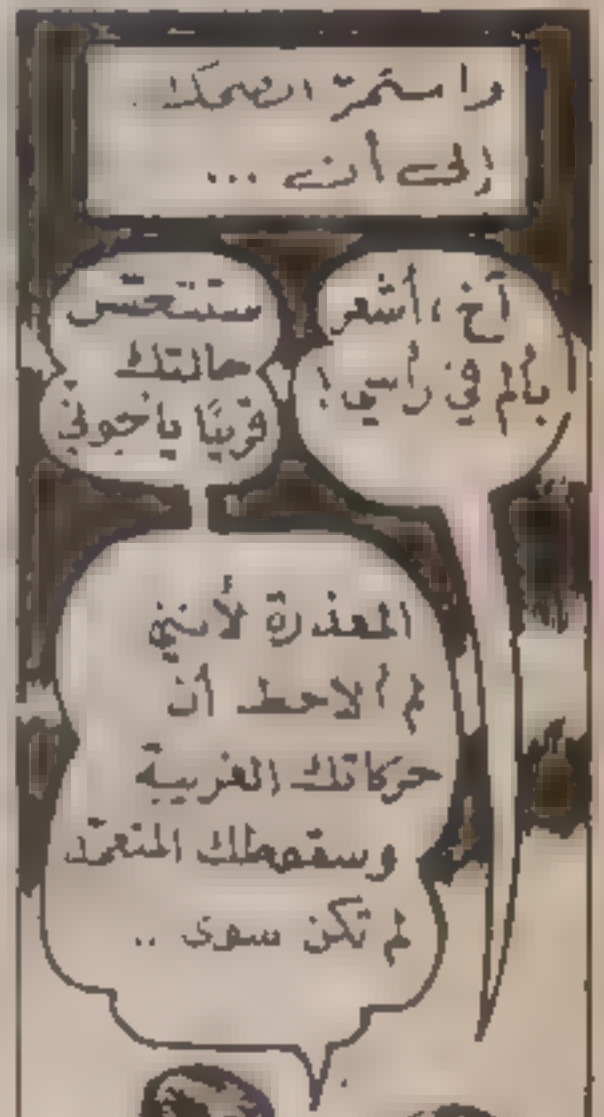 واستمرّ الضحك
إلى أن ...
آخ ، أشعر
بألم في رأسي !
ستتحسّن
حالتك
قريبًا يا جوني
المعذرة لأنني
لم ألاحظ أن
حركاتك الغريبة
وسقوطك المتعمّد
لم تكن سوى ..